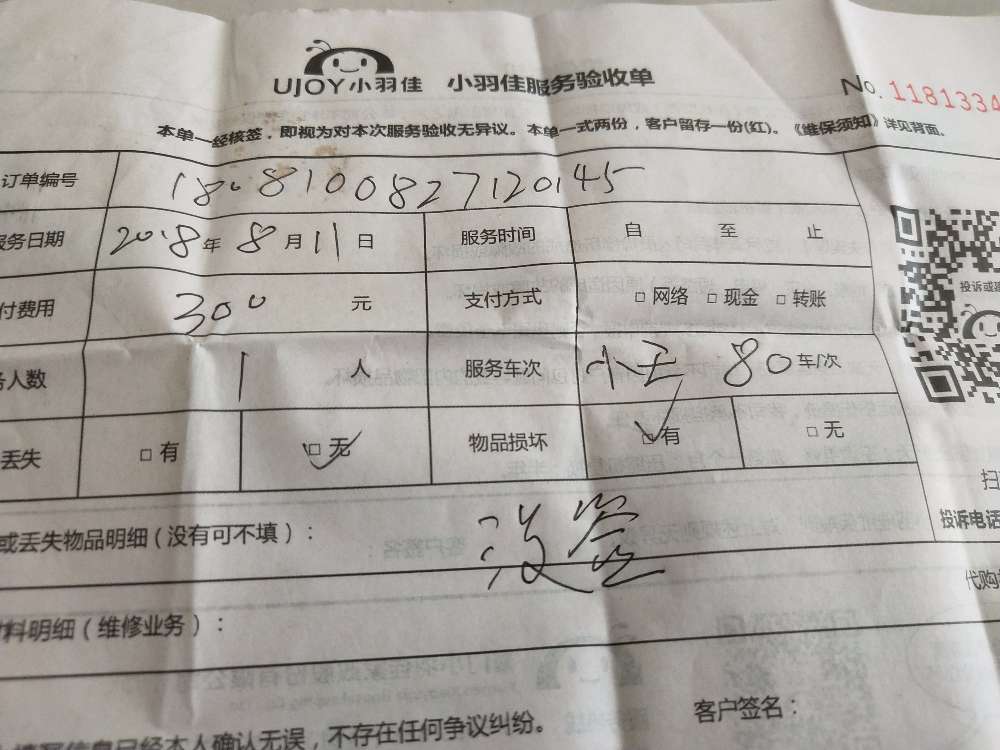 UJOY小羽佳 小羽佳服务验收单 No. 1181334
本单一经核签，即视为对本次服务验收无异议。本单一式两份，客户留存一份(红)。《维保须知》详见背面。
订单编号 1808100827120145
服务日期 2018年 8月11日 服务时间 自 至 止
付费用 300 元 支付方式 □ 网络 □ 现金 □ 转账
人数 1 人 服务车次 小王 80 车/次
丢失 □ 有 □ 无 物品损坏 □ 有 □ 无
投诉或建
扫
投诉电话
或丢失物品明细（没有可不填）： 没签
代购
料明细（维修业务）：
客户签名：
填写信息已经本人确认无误，不存在任何争议纠纷。